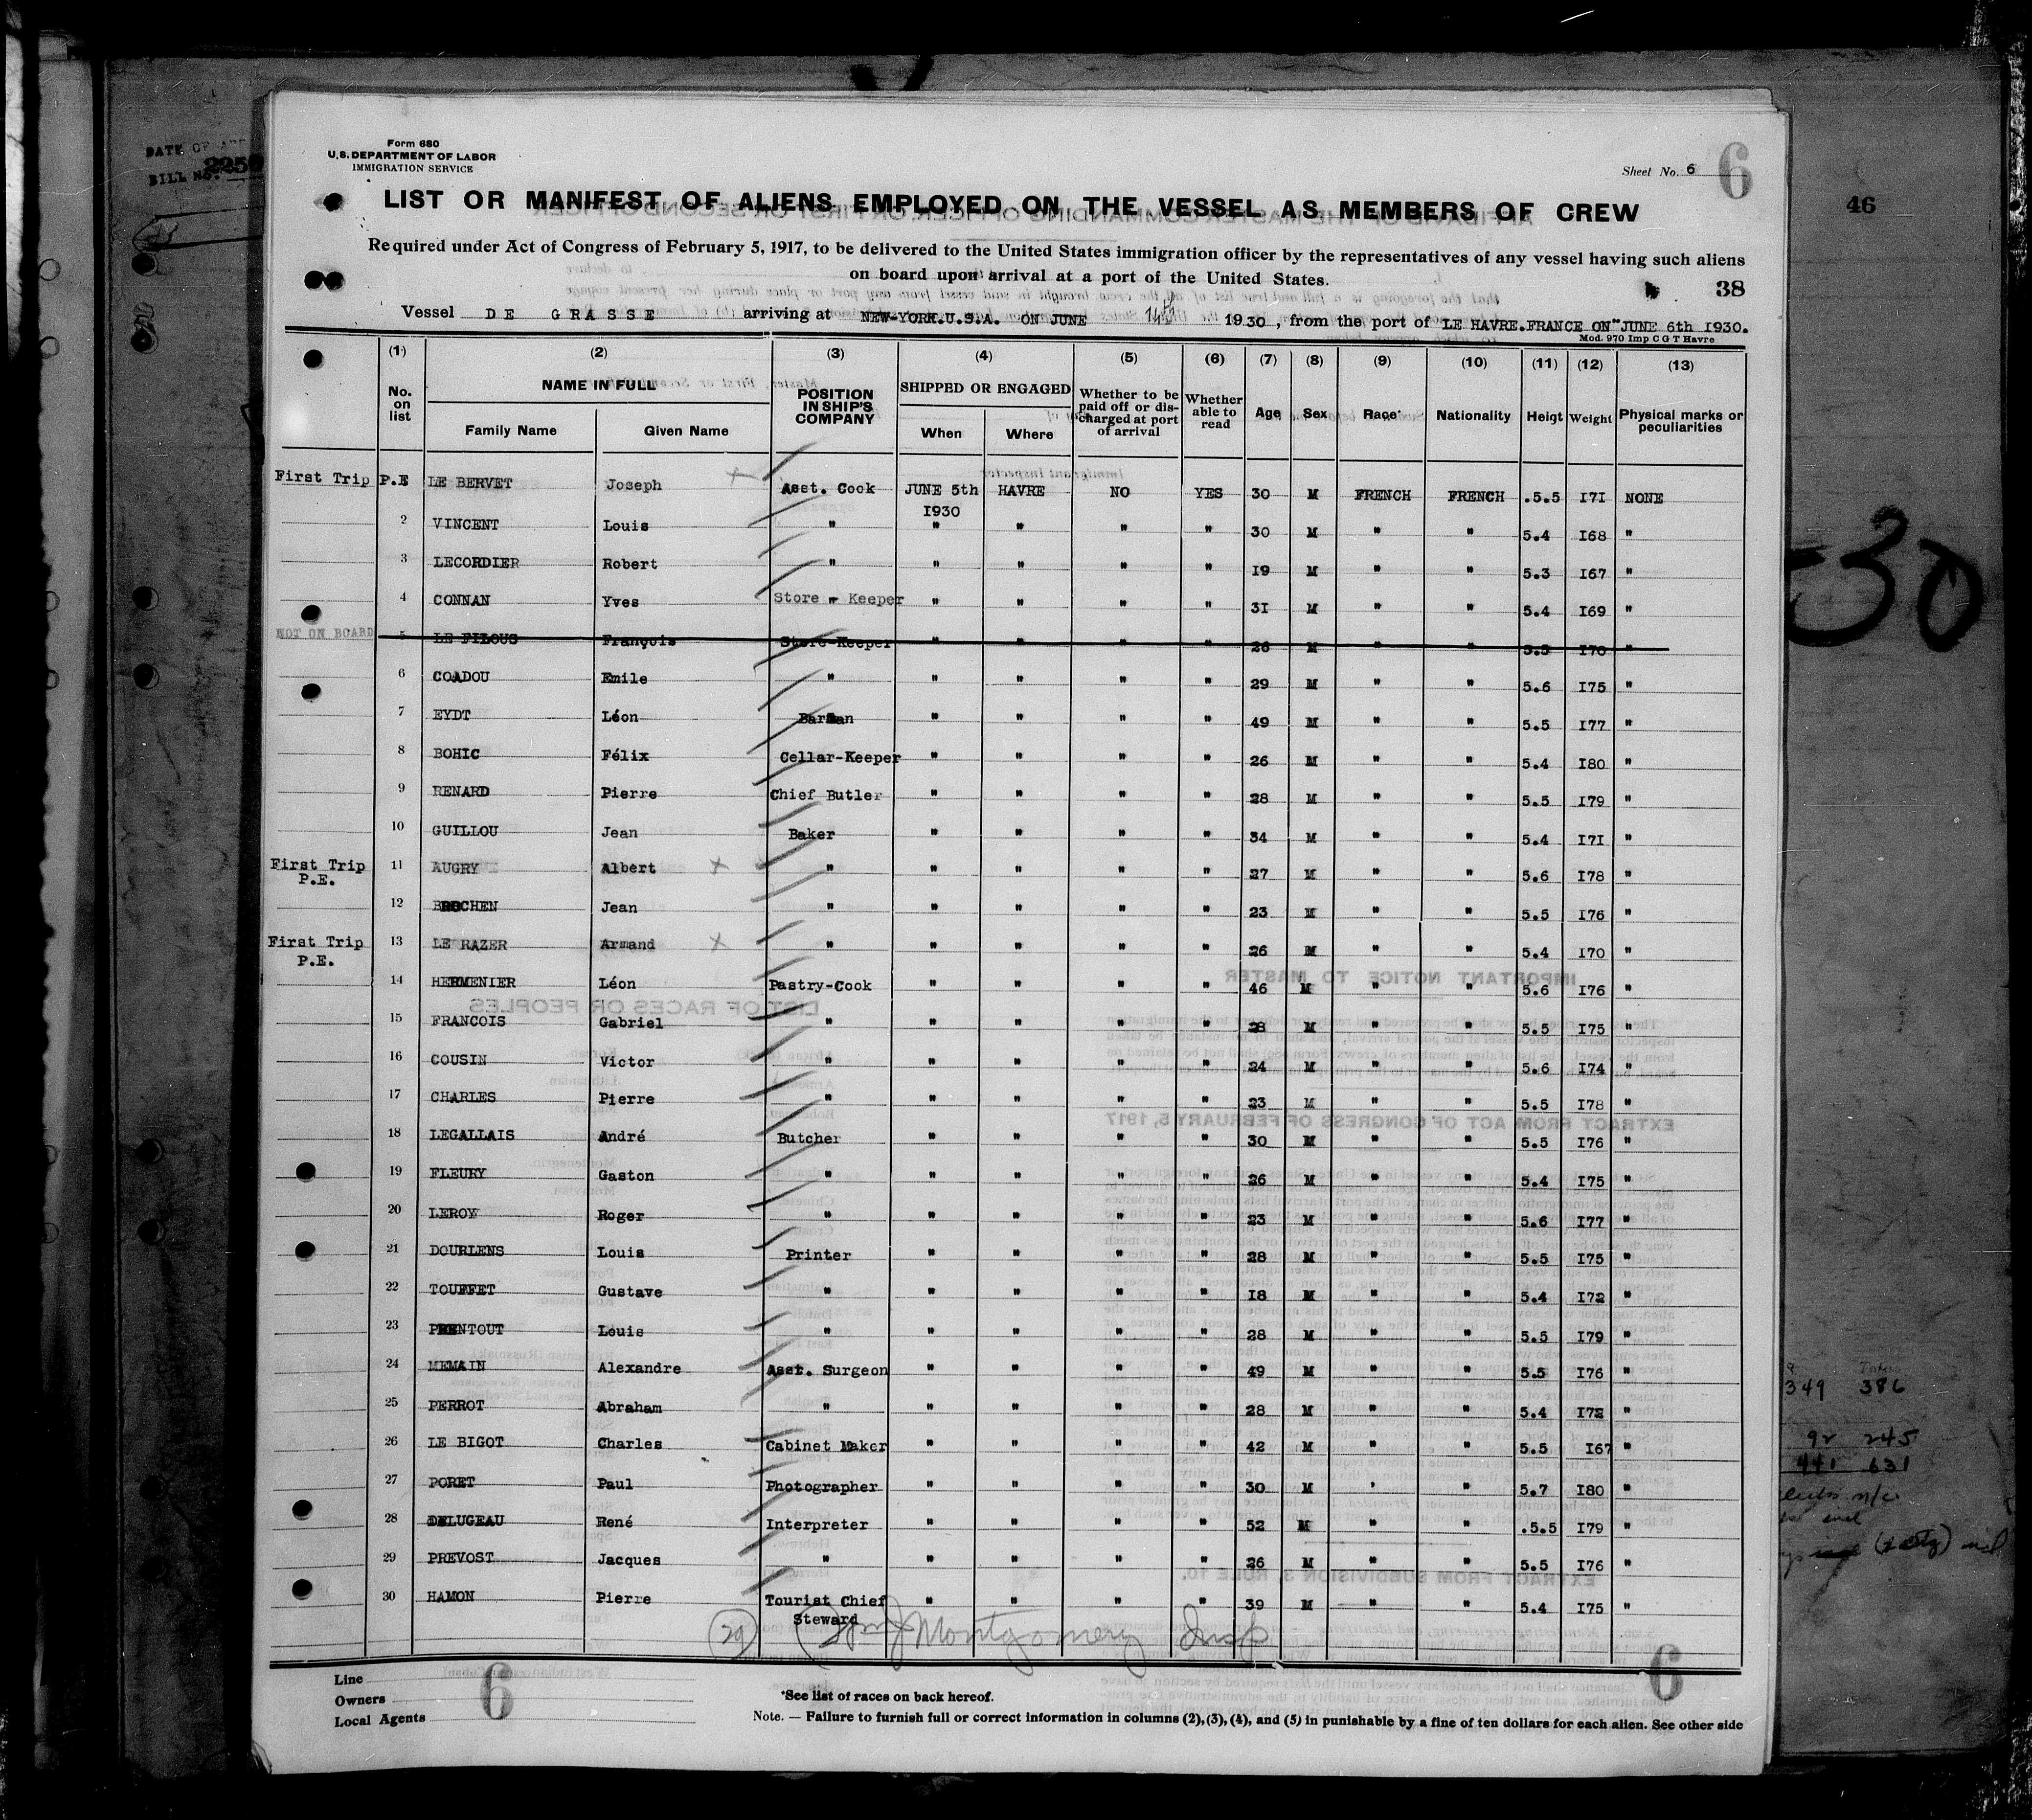 Form 680
U.S. DEPARTMENT OF LABOR
IMMIGRATION SERVICE
Sheet No. 6 6
LIST OR MANIFEST OF ALIENS EMPLOYED ON THE VESSEL AS MEMBERS OF CREW
46
Required under Act of Congress of February 5, 1917, to be delivered to the United States immigration officer by the representatives of any vessel having such aliens
on board upon arrival at a port of the United States.
38
Vessel DE GRASSE arriving at NEW-YORK.U.S.A. ON JUNE 14th 1930, from the port of LE HAVRE.FRANCE ON JUNE 6th 1930.
Mod. 970 Imp C G T Havre
(1) (2) (3) (4) (5) (6) (7) (8) (9) (10) (11) (12) (13)
No. on list NAME IN FULL Family Name Given Name POSITION IN SHIP'S COMPANY SHIPPED OR ENGAGED When Where Whether to be paid off or discharged at port of arrival Whether able to read Age Sex Race Nationality Heigt Weight Physical marks or peculiarities
First Trip P.E LE BERVET Joseph Asst. Cook JUNE 5th 1930 HAVRE NO YES 30 M FRENCH FRENCH .5.5 I7I NONE
2 VINCENT Louis " " " " " 30 M " " 5.4 I68 "
3 LECORDIER Robert " " " " " I9 M " " 5.3 I67 "
4 CONNAN Yves Store - Keeper " " " " 3I M " " 5.4 I69 "
NOT ON BOARD 5 LE FILOUS François Store-Keeper " " " " 26 M " " 5.5 I70 "
6 COADOU Emile " " " " " 29 M " " 5.6 I75 "
7 EYDT Léon Barman " " " " 49 M " " 5.5 I77 "
8 BOHIC Félix Cellar-Keeper " " " " 26 M " " 5.4 I80 "
9 RENARD Pierre Chief Butler " " " " 28 M " " 5.5 I79 "
10 GUILLOU Jean Baker " " " " 34 M " " 5.4 I7I "
First Trip P.E. 11 AUGRY Albert " " " " " 27 M " " 5.6 I78 "
12 BROCHEN Jean " " " " " 23 M " " 5.5 I76 "
First Trip P.E. 13 LE RAZER Armand " " " " " 26 M " " 5.4 I70 "
14 HERMENIER Léon Pastry-Cook " " " " 46 M " " 5.6 I76 "
15 FRANCOIS Gabriel " " " " " 28 M " " 5.5 I75 "
16 COUSIN Victor " " " " " 24 M " " 5.6 I74 "
17 CHARLES Pierre " " " " " 23 M " " 5.5 I78 "
18 LEGALLAIS André Butcher " " " " 30 M " " 5.5 I76 "
19 FLEURY Gaston " " " " " 26 M " " 5.4 I75 "
20 LEROY Roger " " " " " 23 M " " 5.6 I77 "
21 DOURLENS Louis Printer " " " " 28 M " " 5.5 I75 "
22 TOUFFET Gustave " " " " " I8 M " " 5.4 I72 "
23 PRENTOUT Louis " " " " " 28 M " " 5.5 I79 "
24 MEMAIN Alexandre Asst. Surgeon " " " " 49 M " " 5.5 I76 "
25 PERROT Abraham " " " " " 28 M " " 5.4 I72 "
26 LE BIGOT Charles Cabinet Maker " " " " 42 M " " 5.5 I67 "
27 PORET Paul Photographer " " " " 30 M " " 5.7 I80 "
28 DELUGEAU René Interpreter " " " " 52 M " " .5.5 I79 "
29 PREVOST Jacques " " " " " 26 M " " 5.5 I76 "
30 HAMON Pierre Tourist Chief Steward " " " " 39 M " " 5.4 I75 "
29 Montgomery Insp
Line 6 6
Owners
Local Agents
*See list of races on back hereof.
Note. — Failure to furnish full or correct information in columns (2), (3), (4), and (5) in punishable by a fine of ten dollars for each alien. See other side
DATE OF
BILL NO.
30
349 386
92 245
441 631